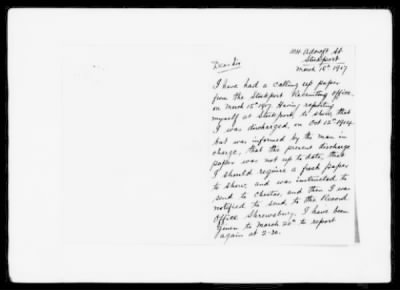 St
Stockport
March 15th 1917
Dear Sir
I have had a calling up paper
from the Stockport Recruiting Office.
on March 15th 1917 Having reported
myself at Stockport, to show that
I was discharged, on Oct 15th 1914
but was informed by the man in
charge, that the present discharge
paper was not up to date, that
I should require a fresh paper
to show, and was instructed to
send to Chester, and then I was
notified to send to the Record
Office Shrewsbury. I have been
given to March 20th to report
again at 2-30.